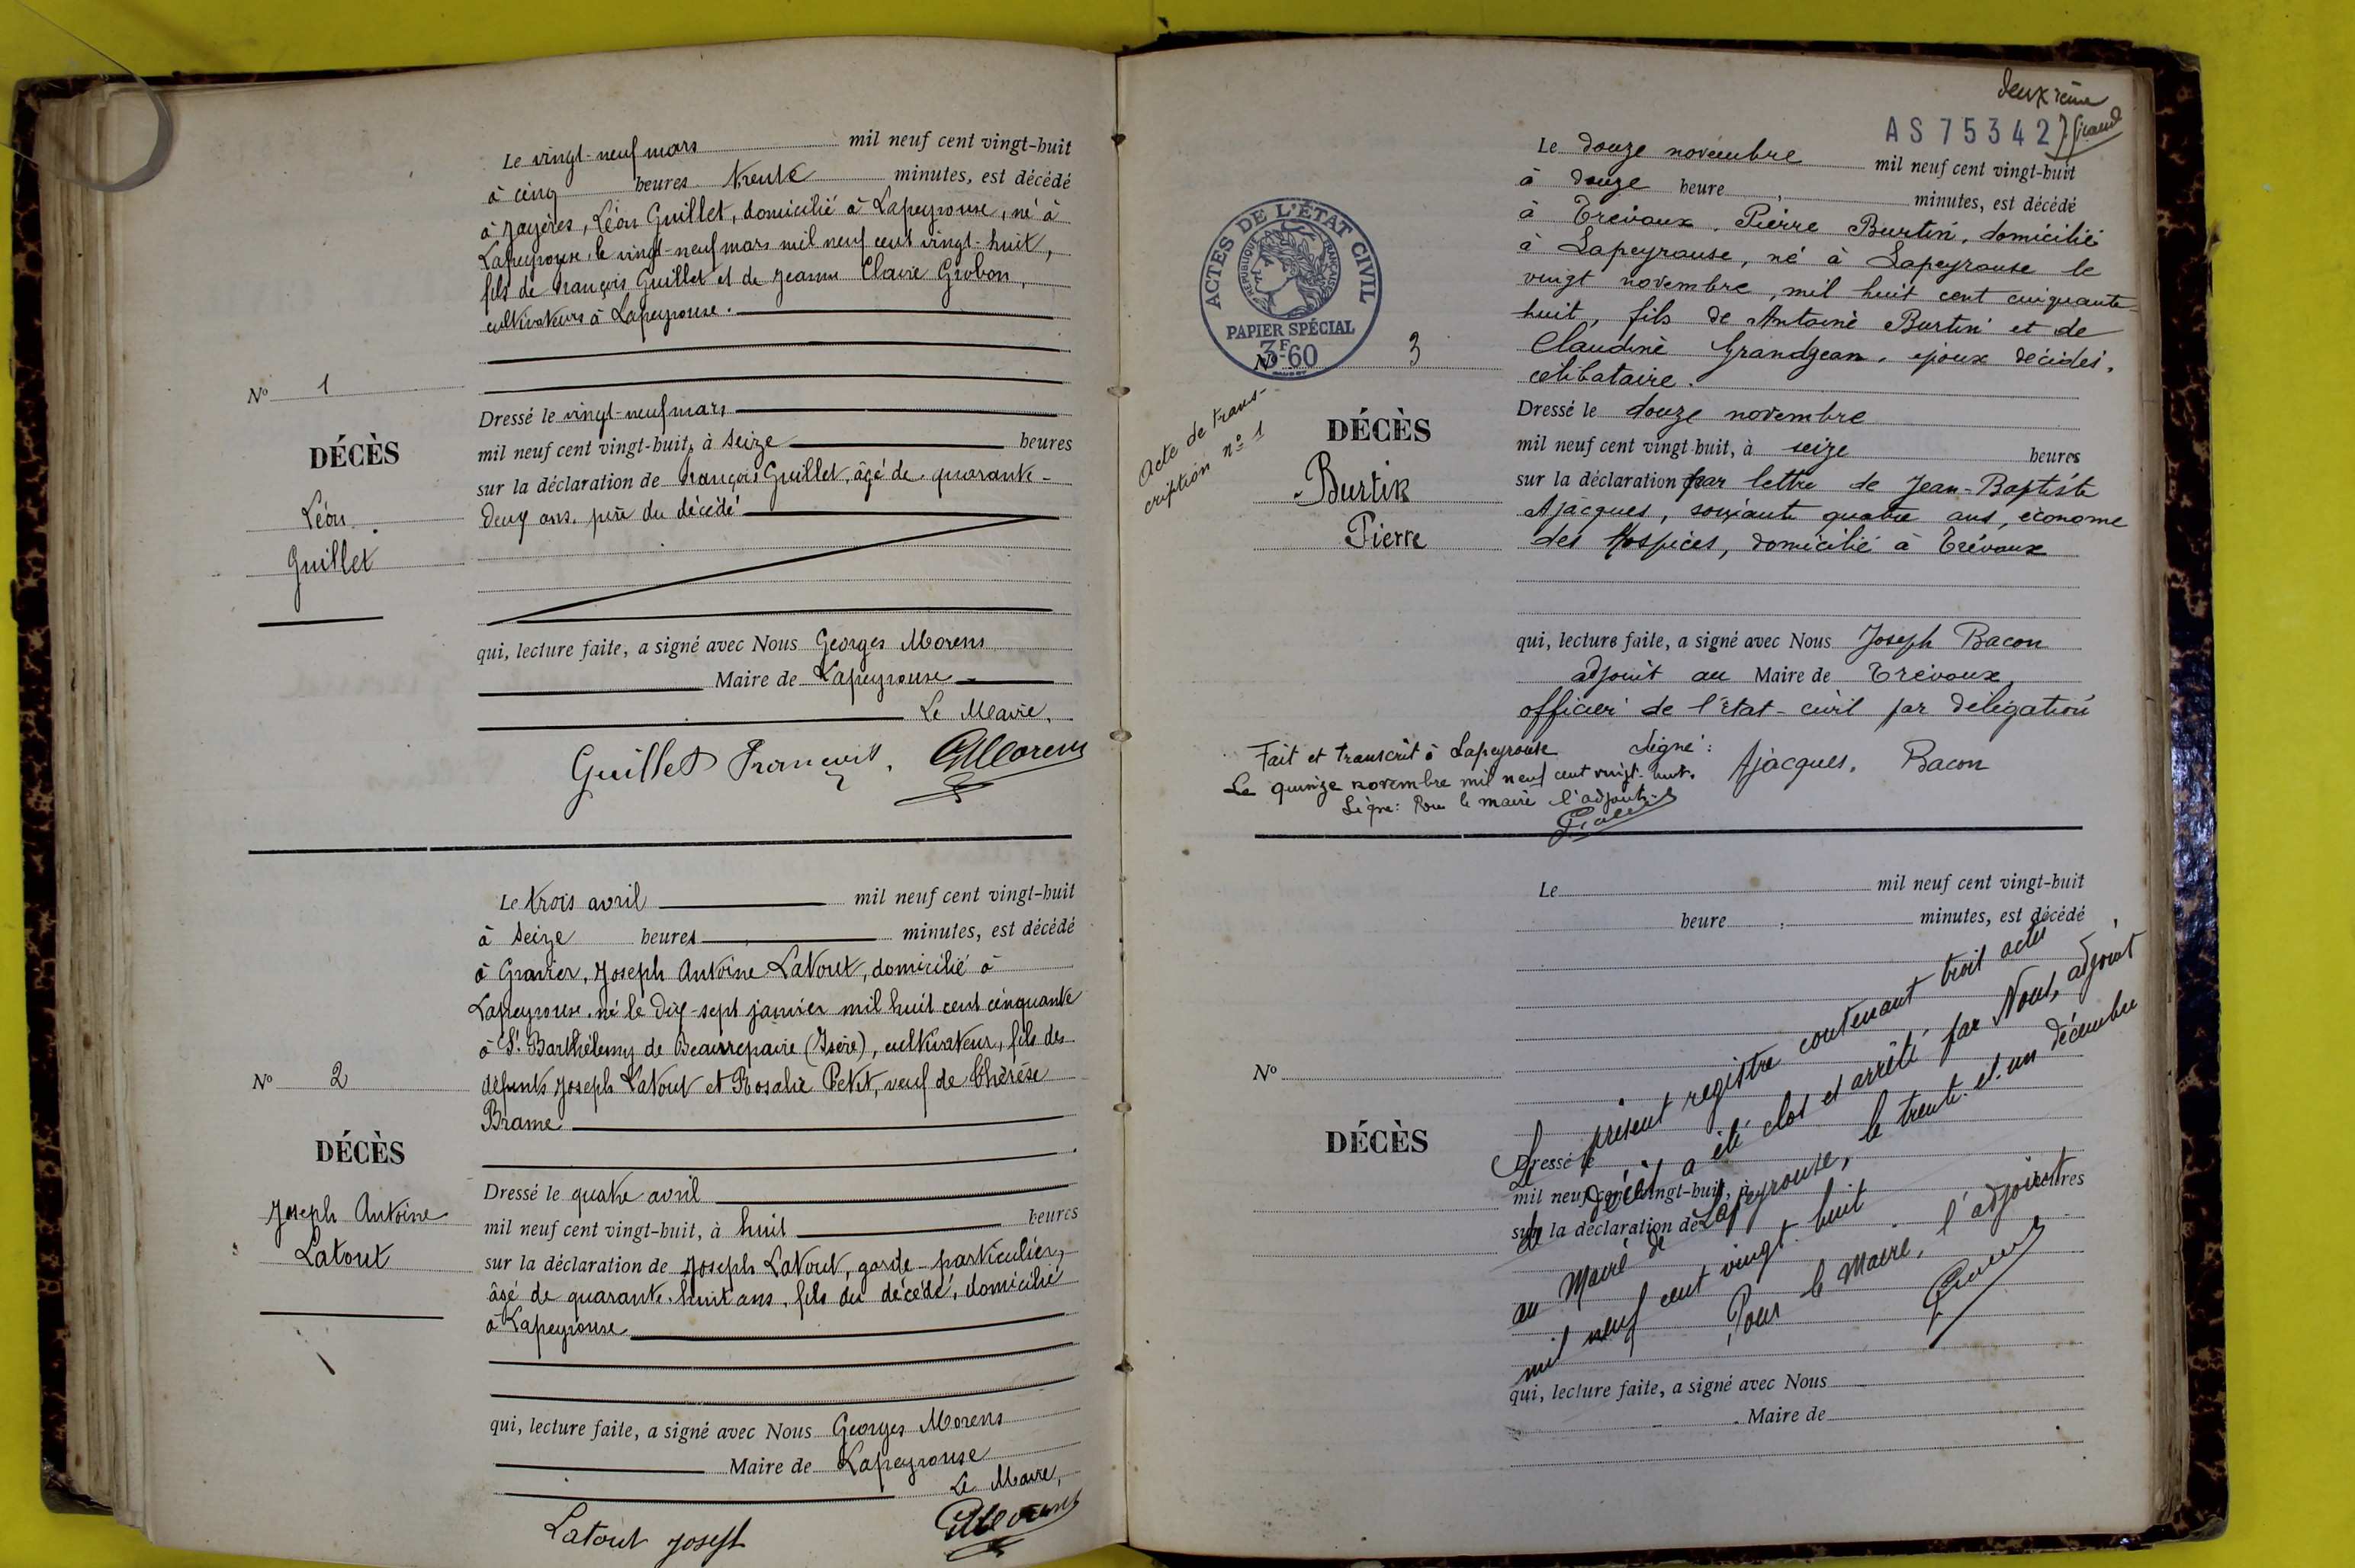 Le vingt-neuf mars mil neuf cent vingt-huit
à cinq heures trente minutes, est décédé
à Jayères, Léon Guillet, domicilié à Lapeyrouse, né à
Lapeyrouse, le vingt-neuf mars mil neuf cent vingt-huit,
fils de François Guillet et de Jeanne Clavie Grobon,
cultivateurs à Lapeyrouse.
No 1
DÉCÈS
Léon
Guillet
Dressé le vingt-neuf mars
mil neuf cent vingt-huit, à seize heures
sur la déclaration de François Guillet, âgé de quarante-
deux ans, père du décédé
qui, lecture faite, a signé avec Nous Georges Morens
Maire de Lapeyrouse
Le Maire,
Guillet François. GMorens
Le trois avril mil neuf cent vingt-huit
à seize heures minutes, est décédé
à Gravier, Joseph Antoine Latout, domicilié à
Lapeyrouse, né le dix-sept janvier mil huit cent cinquante
à St. Barthélemy de Beaurepaire (Isère), cultivateur, fils des
défunts Joseph Latout et Rosalie Petit, veuf de Thérèse
Brame
No 2
DÉCÈS
Joseph Antoine
Latout
Dressé le quatre avril
mil neuf cent vingt-huit, à huit heures
sur la déclaration de Joseph Latout, garde-particulier,
âgé de quarante-huit ans, fils du décédé, domicilié
à Lapeyrouse
qui, lecture faite, a signé avec Nous Georges Morens
Maire de Lapeyrouse
Le Maire,
Latout Joseph GMorens
deuxième
AS 75342
Le douze novembre mil neuf cent vingt-huit
à douze heure minutes, est décédé
à Trévoux, Pierre Burtin, domicilié
à Lapeyrouse, né à Lapeyrouse le
vingt novembre, mil huit cent cinquante-
huit, fils de Antoine Burtin et de
Claudine Grandjean, époux décédés,
célibataire.
ACTES DE L'ÉTAT CIVIL
RÉPUBLIQUE FRANÇAISE
PAPIER SPÉCIAL
3F60
No 3
Acte de trans-
cription no 1
DÉCÈS
Burtin
Pierre
Dressé le douze novembre
mil neuf cent vingt-huit, à seize heures
sur la déclaration par lettre de Jean-Baptiste
Ajacques, soixante quatre ans, économe
des Hospices, domicilié à Trévoux
qui, lecture faite, a signé avec Nous Joseph Bacon
adjoint au Maire de Trévoux,
officier de l'état-civil par délégation
Signé: Ajacques. Bacon
Fait et transcrit à Lapeyrouse
Le quinze novembre mil neuf cent vingt-huit.
Signé: Pour le maire l'adjoint
Le mil neuf cent vingt-huit
heure minutes, est décédé
No
DÉCÈS
Dressé le
mil neuf cent vingt-huit, à heures
sur la déclaration de
Le présent registre contenant trois actes
de décès a été clos et arrêté par Nous, adjoint
au Maire de Lapeyrouse, le trente-et-un décembre
mil neuf cent vingt-huit
Pour le Maire, l'adjoint
qui, lecture faite, a signé avec Nous
Maire de